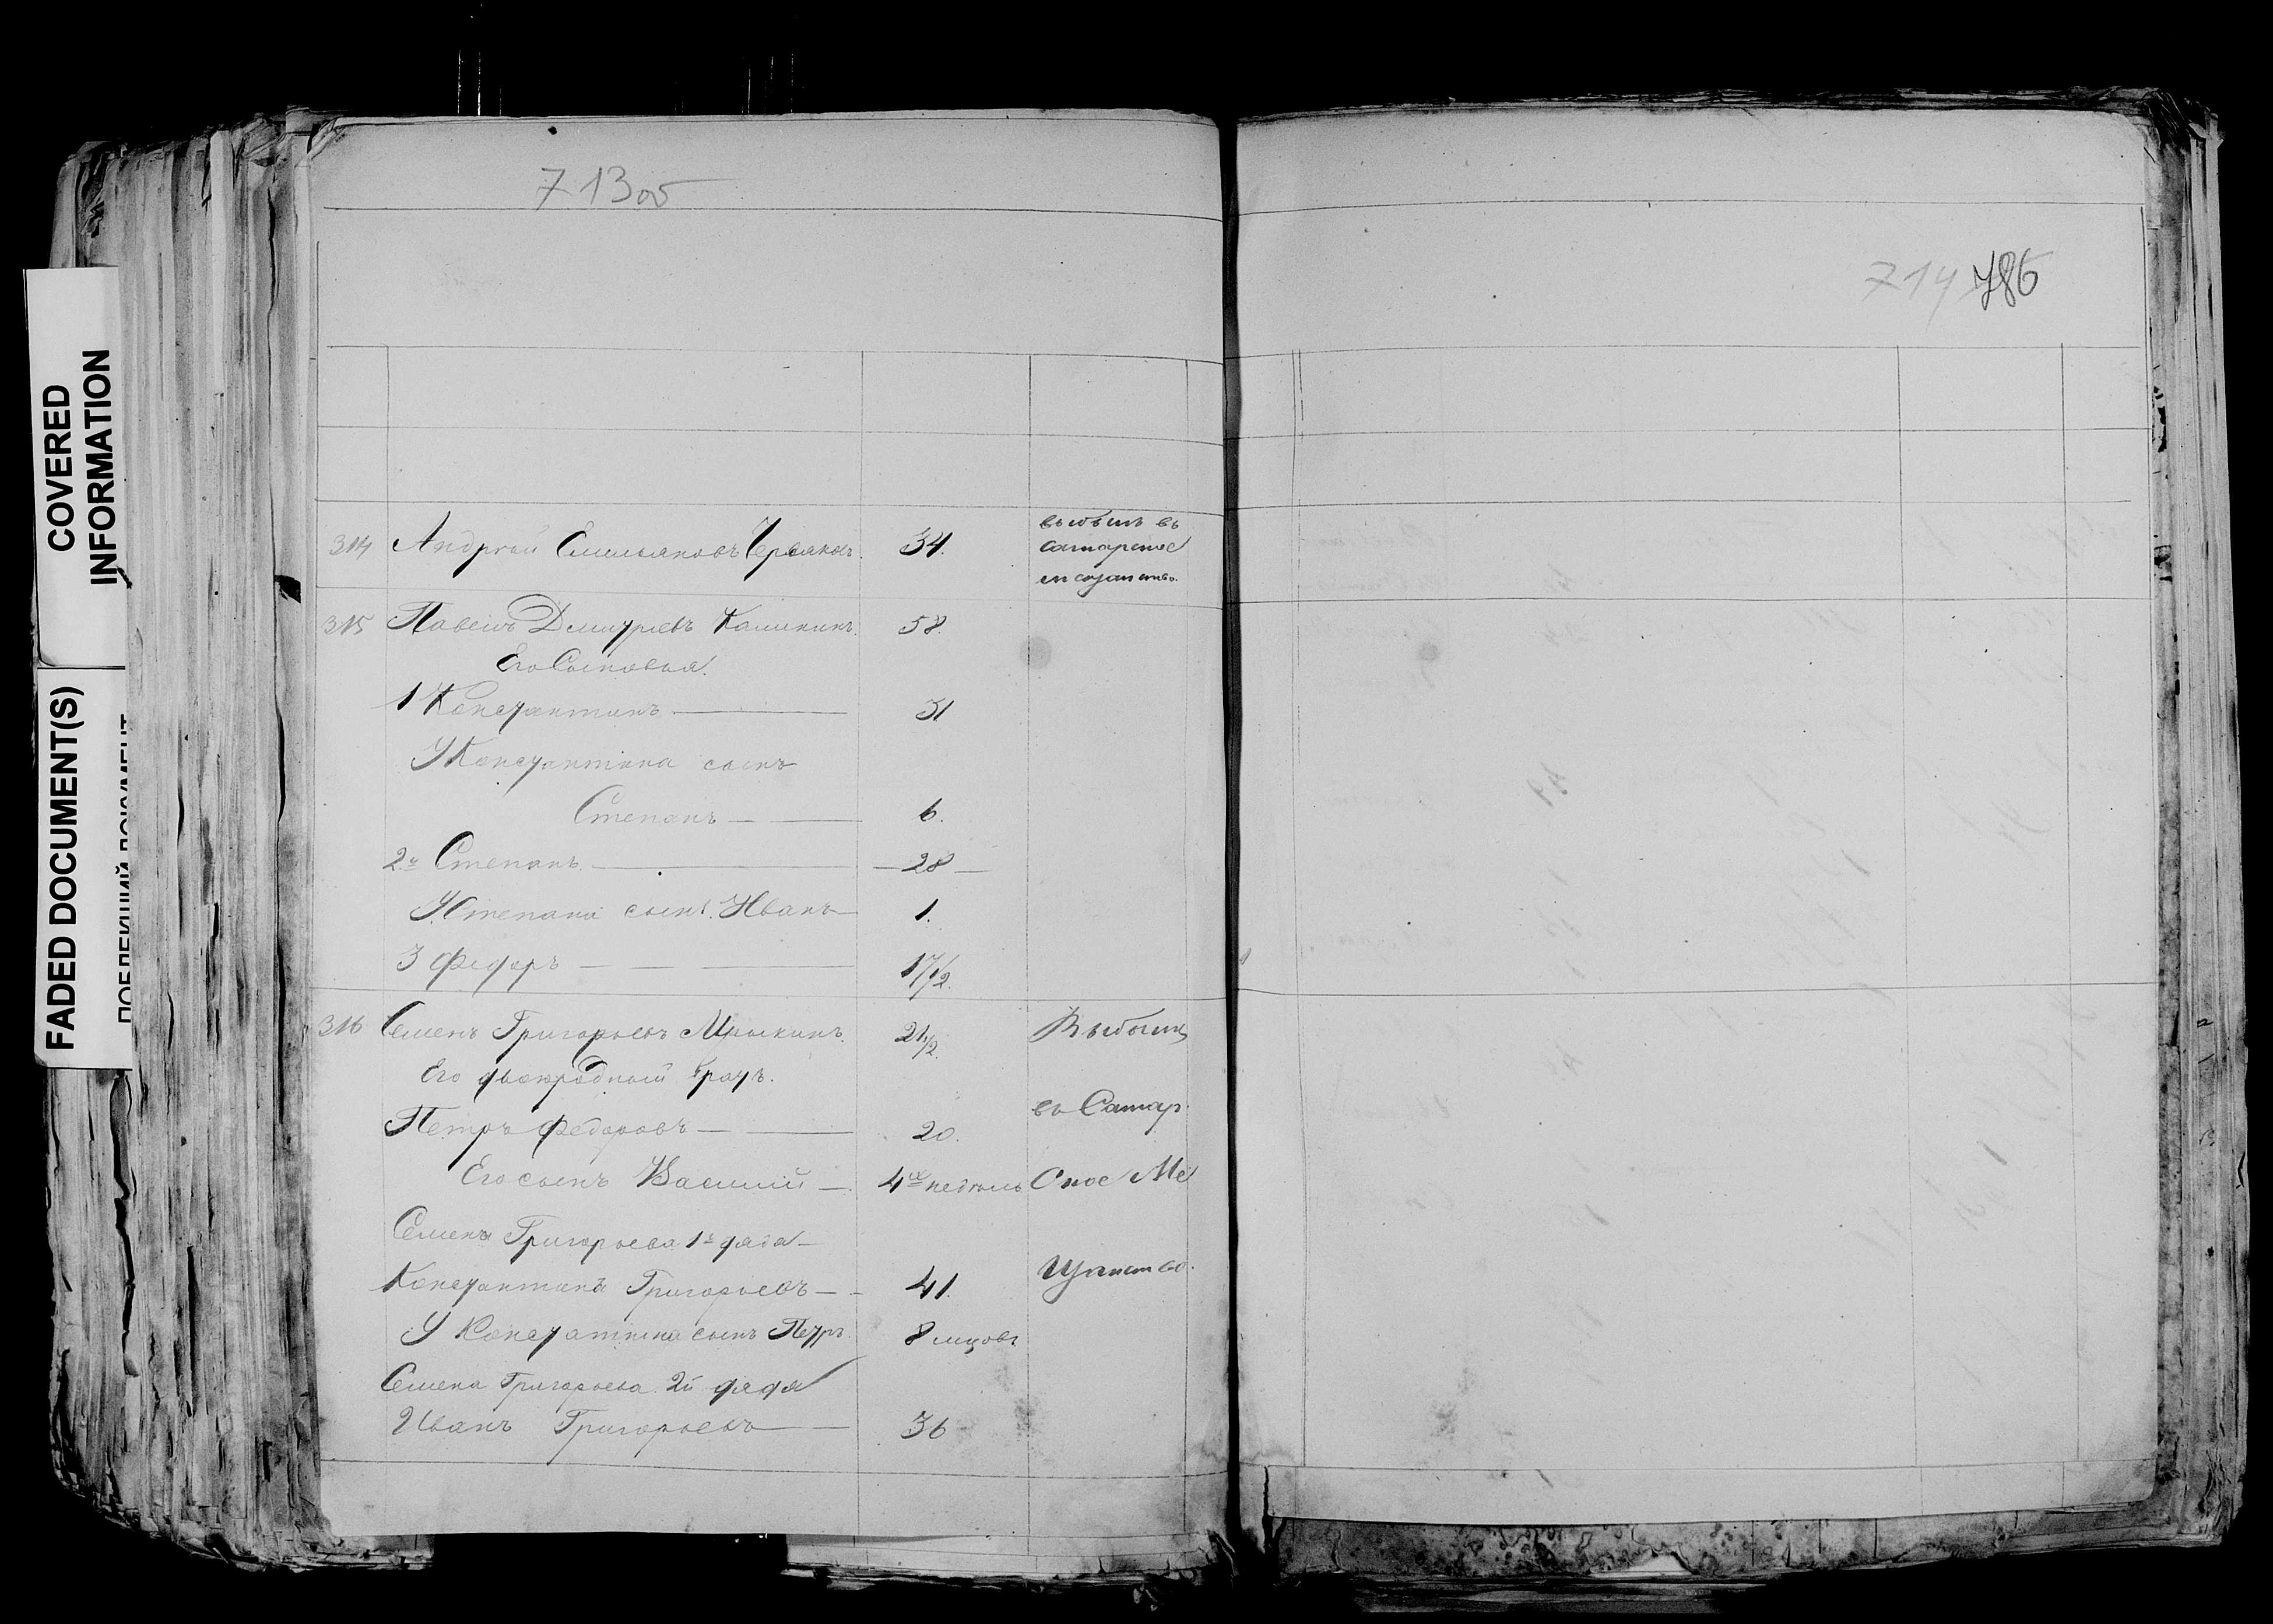 COVERED
INFORMATION
FADED DOCUMENT(S)
713об
714 786
314 Андрей Емельяновъ Червяковъ. 34. выбылъ въ
самарское
мещанство.
315 Павелъ Дмитріевъ Калининъ. 58.
Его Сыновья
1 Константинъ 31
У Константина сынъ
Степанъ 6.
2й Степанъ 28
У Степана сынъ Иванъ 1.
3 Федоръ 17 1/2.
316 Семенъ Григорьевъ 21 1/2. Выбылъ
Его двоюродный братъ.
Петръ Федоровъ 20. въ Самар
Его сынъ Василій 4хъ недель ское Ме
Семена Григорьева 1й дядя
Константинъ Григорьевъ 41. щанство.
У Константина сынъ Петръ 8 мцовъ
Семена Григорьева 2й дядя
Иванъ Григорьевъ 36